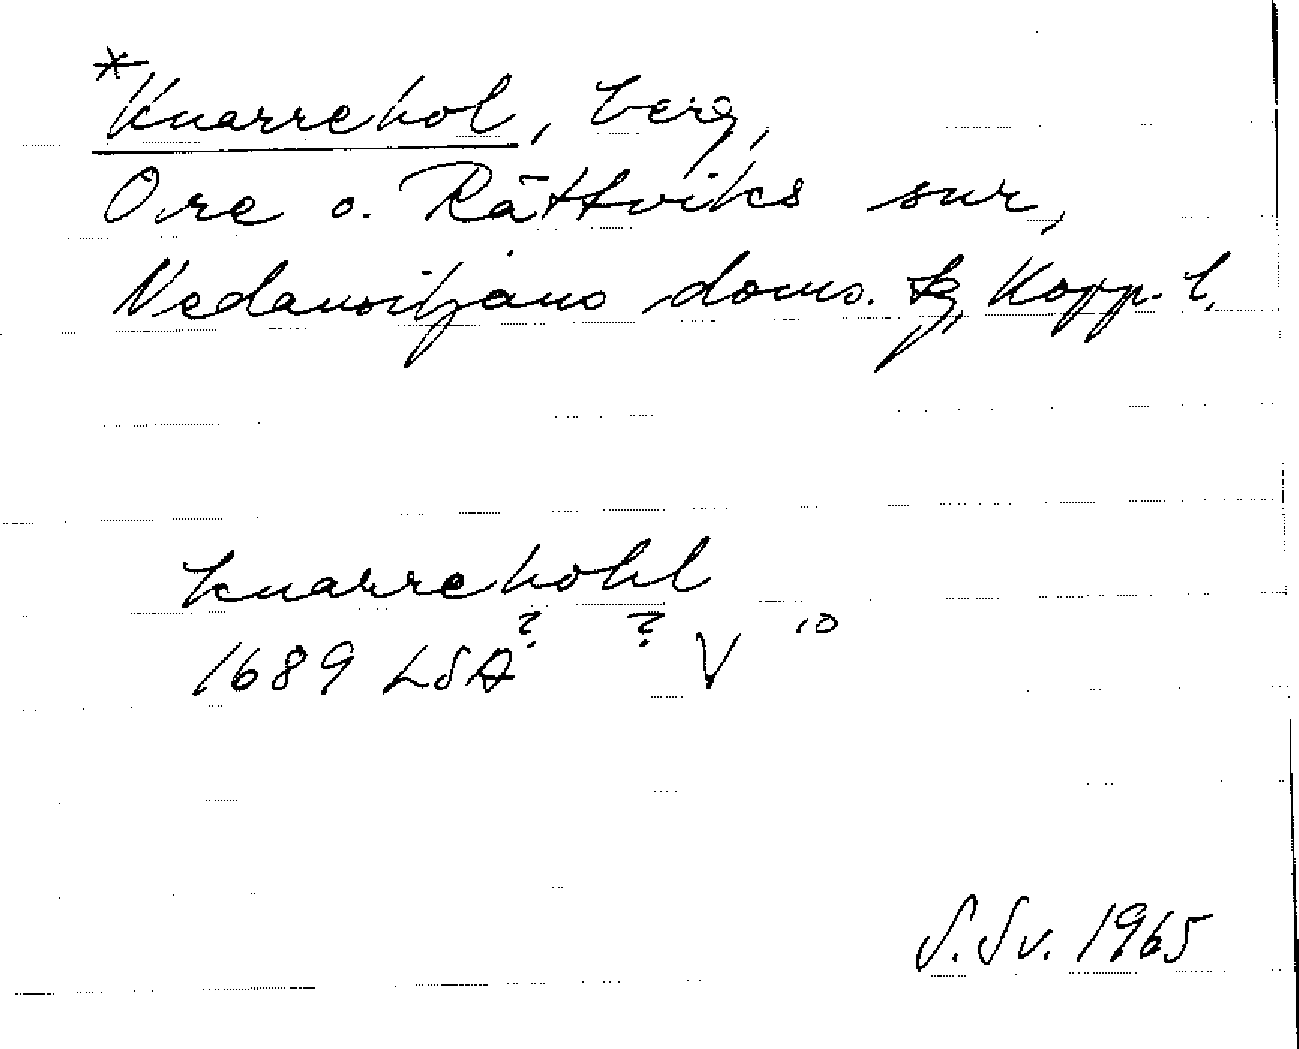 *Knarrehol, berg,
Ore o. Rättviks snr,
Nedansiljans doms. tg, Kopp. l.
Knarrehohl
1689 LSA ? ? V 10
S. Sv. 1965